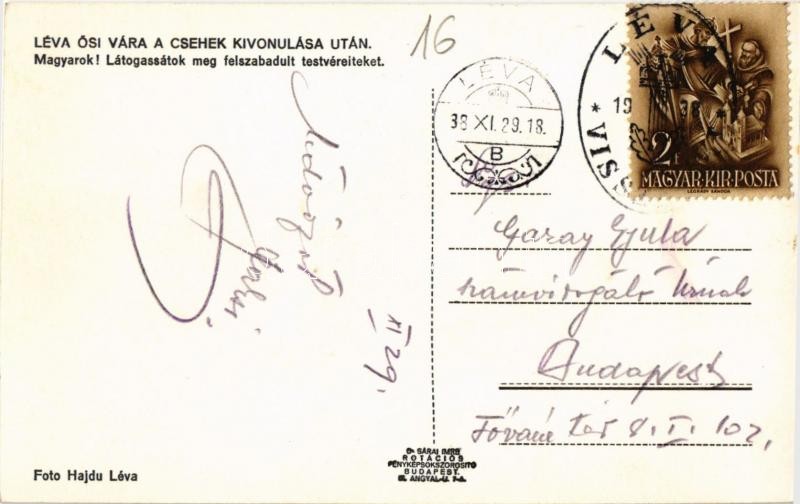 LÉVA ŐSI VÁRA A CSEHEK KIVONULÁSA UTÁN.
Magyarok! Látogassátok meg felszabadult testvéreiteket.
16
LÉVA
38 XI. 29. 18.
B
LÉVA
19 38
VISSZ
2f
MAGYAR·KIR·POSTA
LÉGRÁDY SÁNDOR
XI 29.
Garay Gyula
számvizsgáló Úrnak
Budapest
Fővám tér 8. I. 102.
Foto Hajdu Léva
Dr SÁRAI IMRE
ROTÁCIÓS
FÉNYKÉPSOKSZOROSÍTÓ
BUDAPEST.
ANGYAL-U.